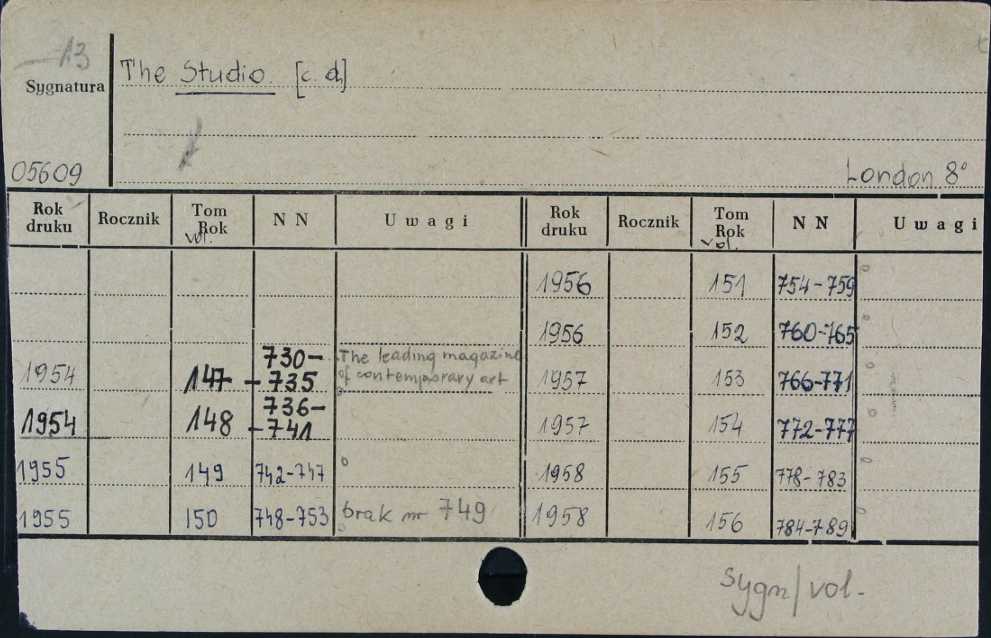 13
Sygnatura
The Studio. [c. d.]
05609
London 8°
Rok druku Rocznik Tom Rok vol. N N Uwagi Rok druku Rocznik Tom Rok vol. N N Uwagi
1956 151 754-759
1956 152 760-765
1954 147 - 730-735 The leading magazine of contemporary art 1957 153 766-771
1954 148 - 736-741 1957 154 772-777
1955 149 742-747 1958 155 778-783
1955 150 748-753 brak nr 749 1958 156 784-789
sygn/vol.